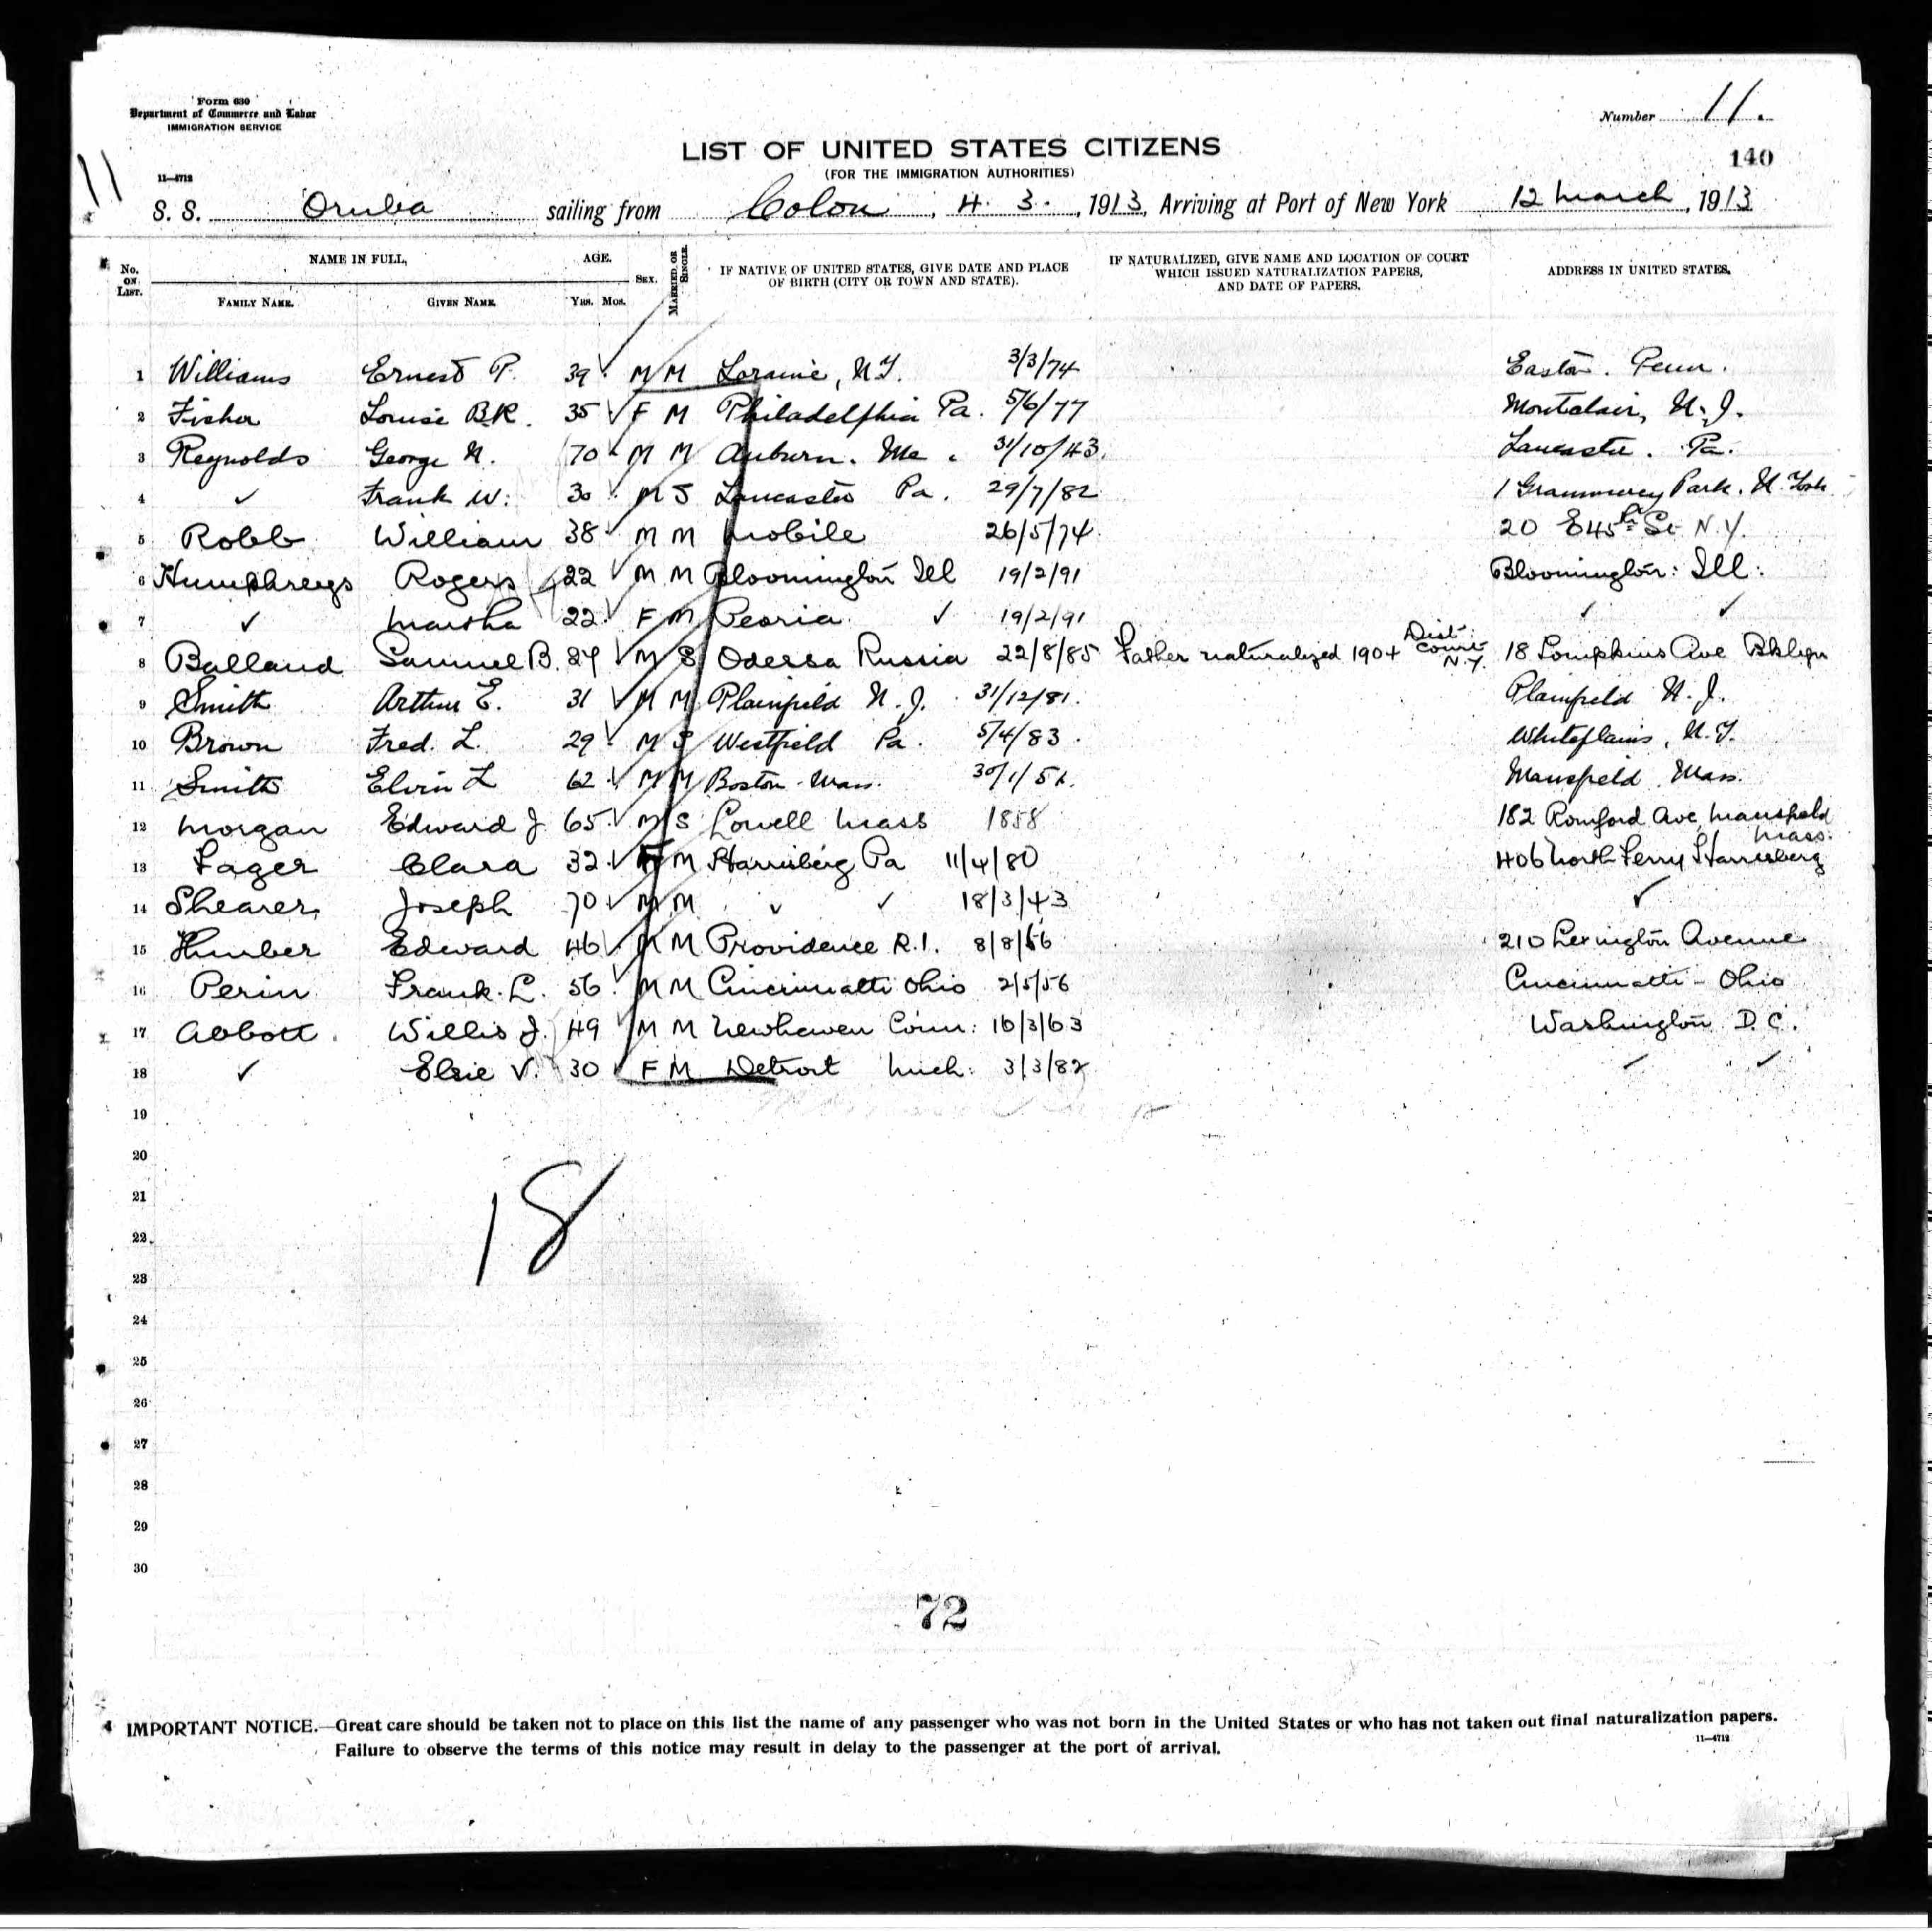 Form 630
Department of Commerce and Labor
IMMIGRATION SERVICE
Number 11.
LIST OF UNITED STATES CITIZENS
140
(FOR THE IMMIGRATION AUTHORITIES)
11
11—4712
S. S. Oruba sailing from Colon, 4. 3., 1913, Arriving at Port of New York 12 March, 1913
No. ON LIST. NAME IN FULL, AGE. SEX. MARRIED OR SINGLE. IF NATIVE OF UNITED STATES, GIVE DATE AND PLACE OF BIRTH (CITY OR TOWN AND STATE). IF NATURALIZED, GIVE NAME AND LOCATION OF COURT WHICH ISSUED NATURALIZATION PAPERS, AND DATE OF PAPERS. ADDRESS IN UNITED STATES.
FAMILY NAME. GIVEN NAME. YRS. MOS.
1 Williams Ernest P. 39 M M Loraine, N.Y. 3/3/74 Easton. Penn.
2 Fisher Louise B.R. 35 F M Philadelphia Pa. 5/6/77 Montclair, N.J.
3 Reynolds George N. 70 M M Auburn. Me. 31/10/43. Lancaster. Pa.
4 ✓ Frank W. 30 M S Lancaster Pa. 29/7/82 1 Grammercy Park. N. York
5 Robb William 38 M M Mobile 26/5/74 20 E 45th St N.Y.
6 Humphreys Rogers 22 M M Bloomington Ill 19/2/91 Bloomington: Ill:
7 ✓ Martha 22 F M Peoria ✓ 19/2/91 ✓ ✓
8 Balland Samuel B. 27 M S Odessa Russia 22/8/85 Father naturalized 1904 Dist. Court N.Y. 18 Tompkins Ave Bklyn
9 Smith Arthur E. 31 M M Plainfield N.J. 31/12/81. Plainfield N.J.
10 Brown Fred. L. 29 M S Westfield Pa. 5/4/83. Whiteplains, N.Y.
11 Smith Elvin L 62 M M Boston Mass. 30/1/51. Mansfield Mass.
12 Morgan Edward J 65 M S Lowell Mass 1858 182 Rumford Ave, Mansfield Mass.
13 Fager Clara 32 F M Harrisberg Pa 11/4/80 406 North Ferry Harrisberg
14 Shearer Joseph 70 M M ✓ ✓ 18/3/43 ✓
15 Edward 46 M M Providence R.I. 8/8/66 210 Lexington Avenue
16 Perin Frank. L. 56 M M Cincinnatti Ohio 2/5/56 Cincinnatti - Ohio
17 Abbott. Willis J. 49 M M Newhaven Conn: 16/3/63 Washington D.C.
18 ✓ Elsie V. 30 F M Detroit Mich: 3/3/82 ✓ ✓
19
20
21
18
22
23
24
25
26
27
28
29
30
72
IMPORTANT NOTICE.—Great care should be taken not to place on this list the name of any passenger who was not born in the United States or who has not taken out final naturalization papers.
Failure to observe the terms of this notice may result in delay to the passenger at the port of arrival.
11—4712